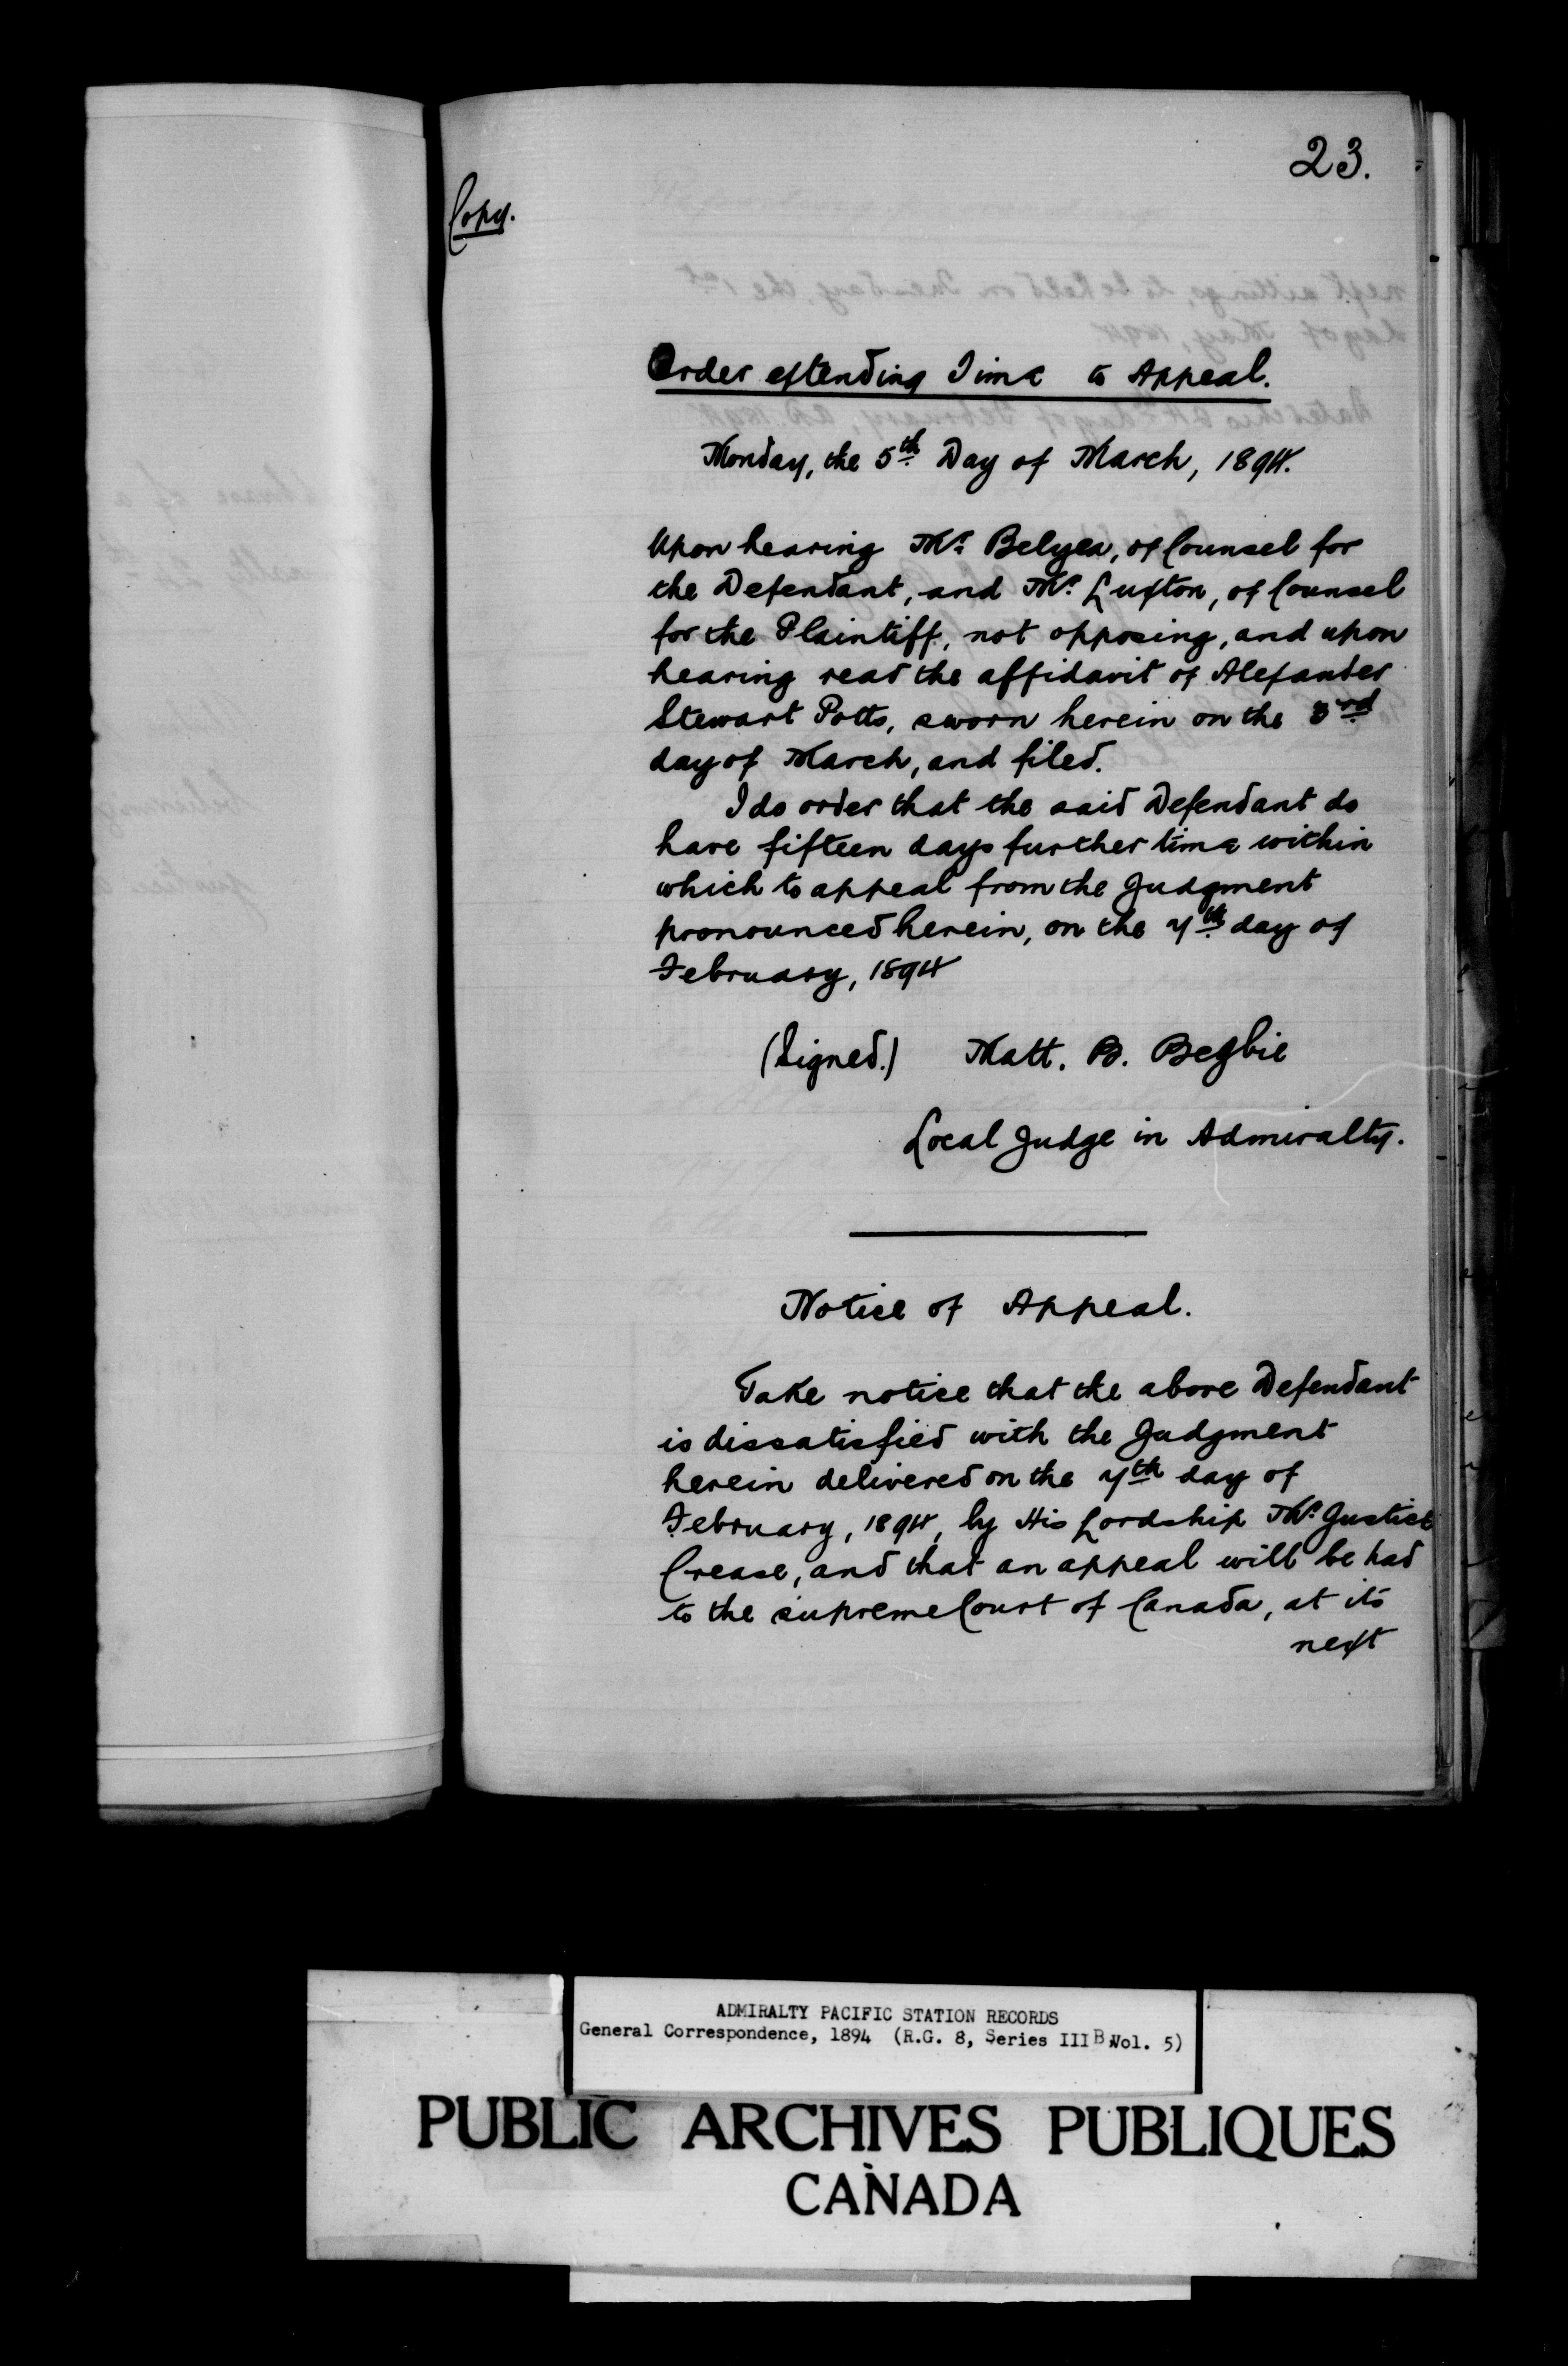 23.
Copy.
Order extending Time to Appeal.
Monday, the 5th Day of March, 1894.
Upon hearing Mr. Belyea, of Counsel for
the Defendant, and Mr. Luxton, of Counsel
for the Plaintiff, not opposing, and upon
hearing read the affidavit of Alexander
Stewart Potts, sworn herein on the 3rd
day of March, and filed.
I do order that the said Defendant do
have fifteen days further time within
which to appeal from the Judgment
pronounced herein, on the 7th day of
February, 1894
(Signed.) Matt. B. Begbie
Local Judge in Admiralty.
Notice of Appeal.
Take notice that the above Defendant
is dissatisfied with the Judgment
herein delivered on the 7th day of
February, 1894, by His Lordship Mr. Justice
Crease, and that an appeal will be had
to the supreme Court of Canada, at its
next
ADMIRALTY PACIFIC STATION RECORDS
General Correspondence, 1894 (R.G. 8, Series III B Vol. 5)
PUBLIC ARCHIVES PUBLIQUES
CANADA